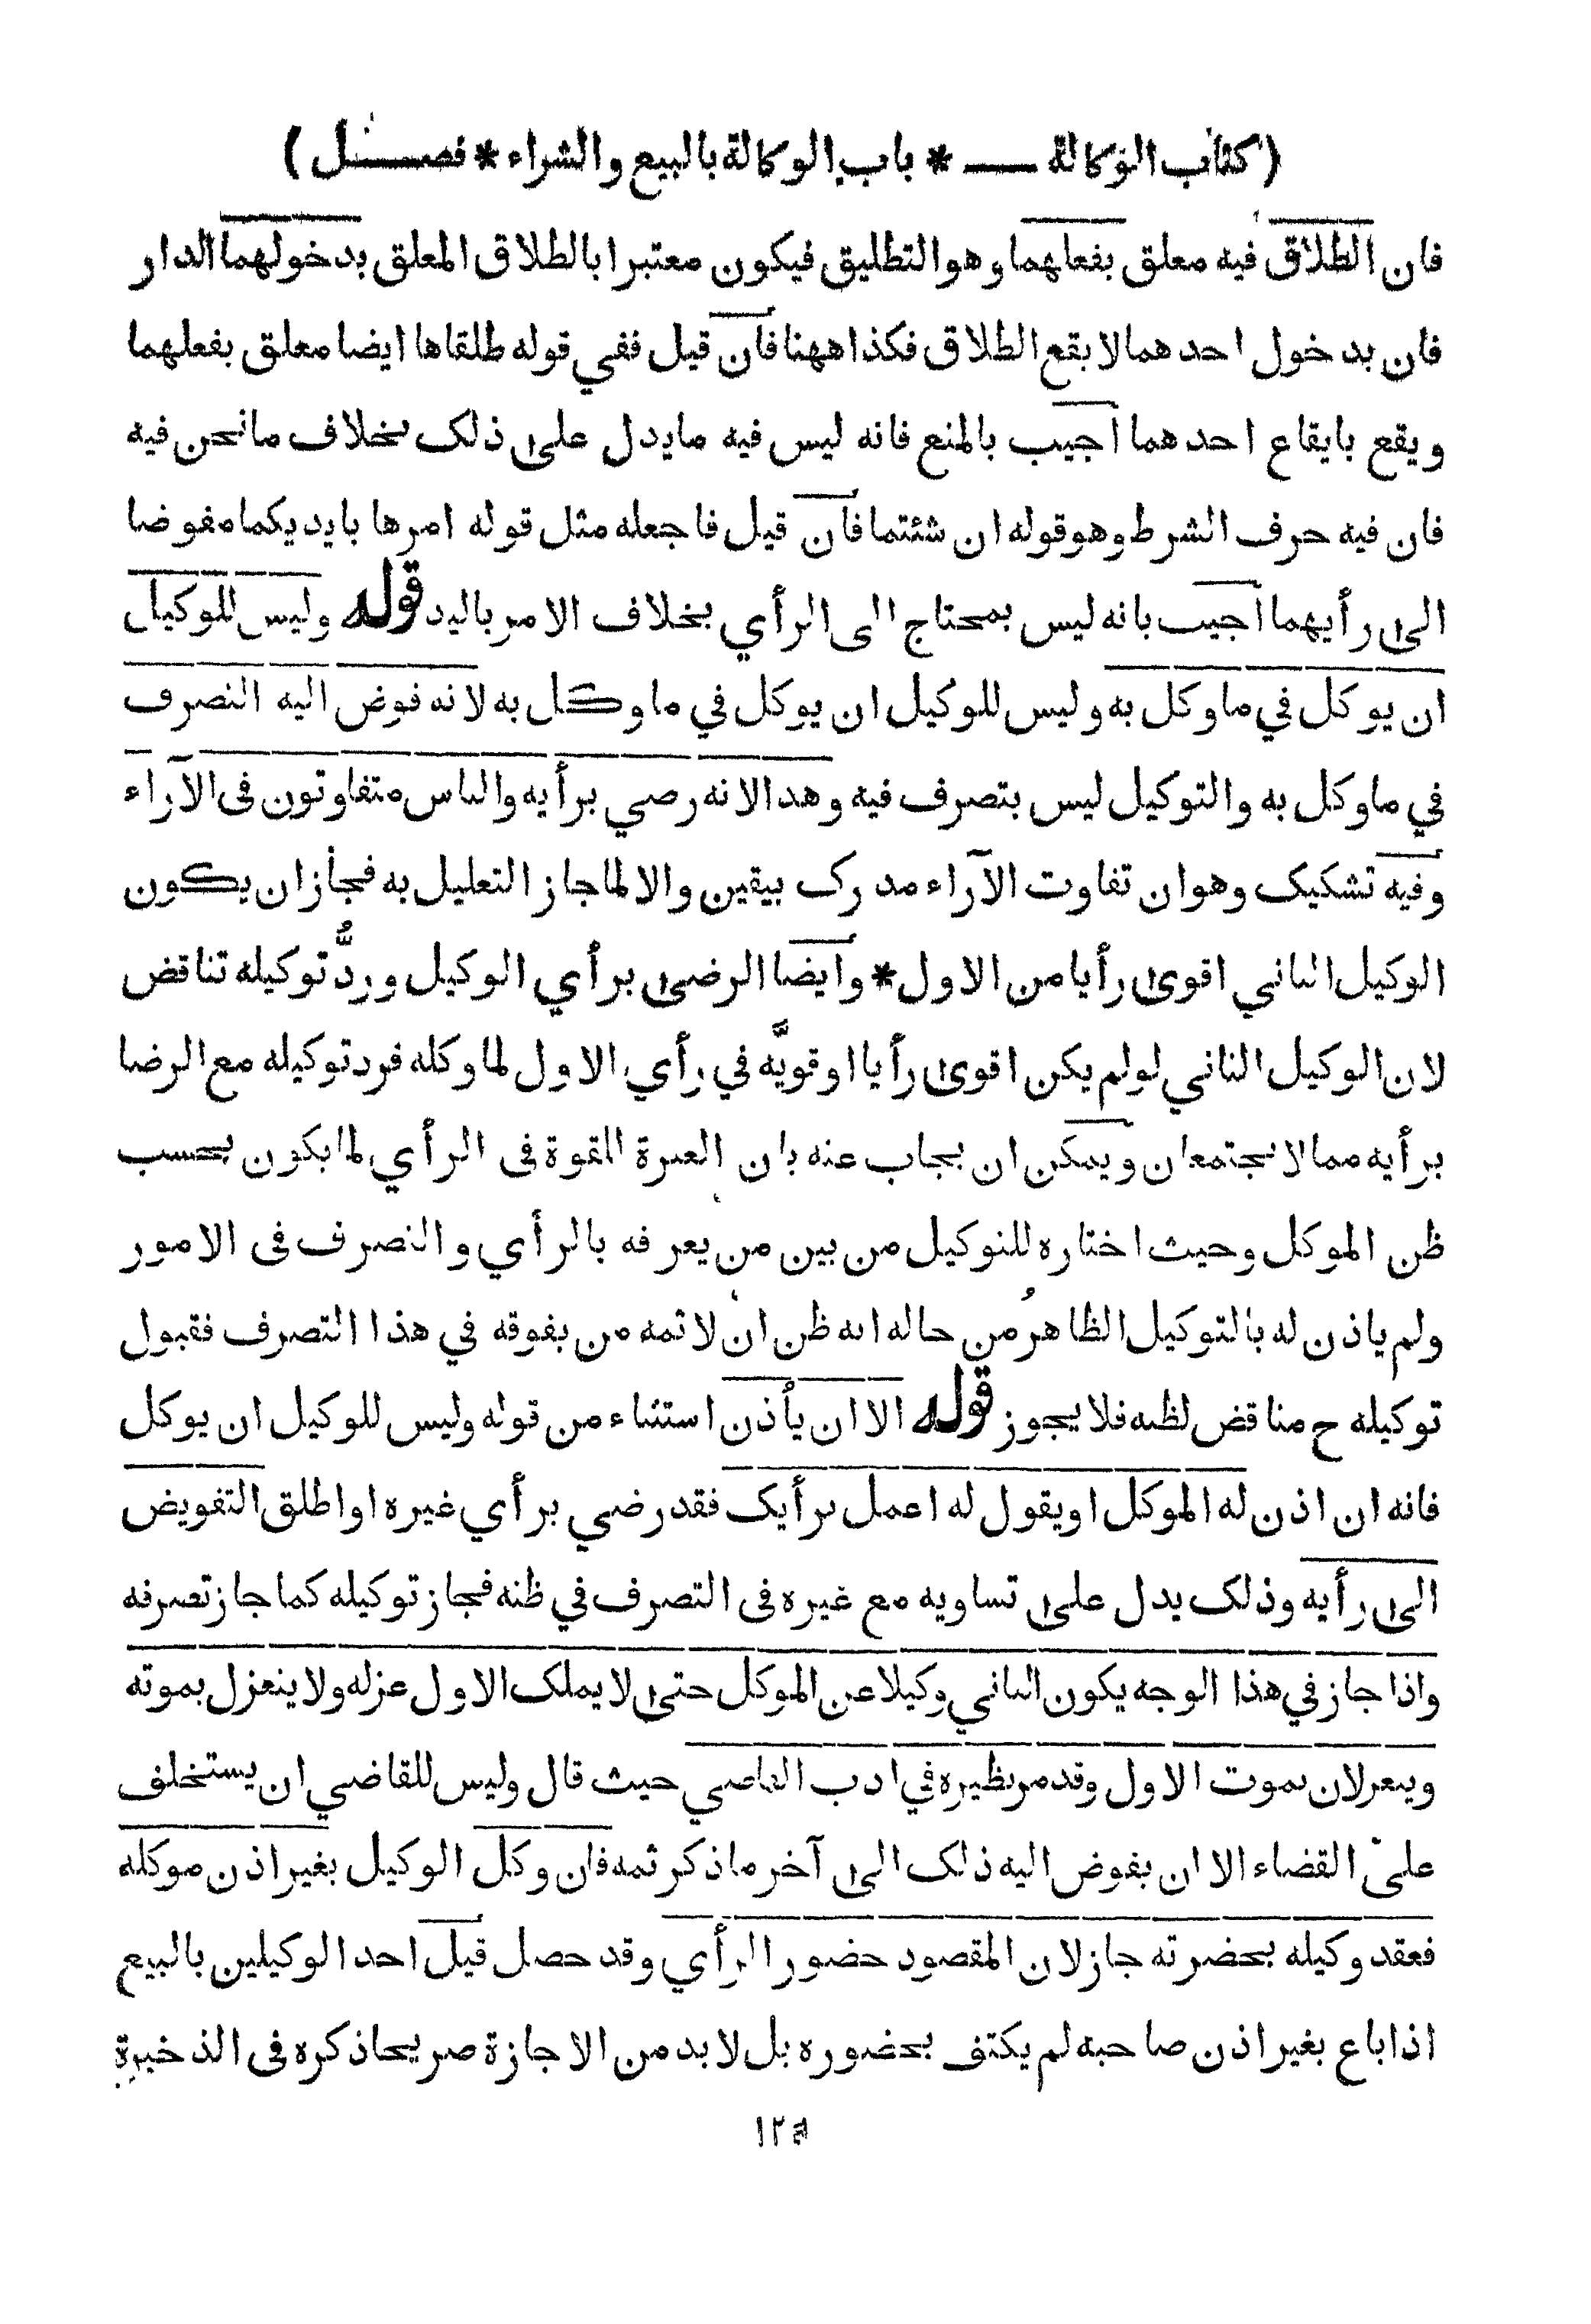 ( كتاب الوكالة ـــ * باب الوكالة بالبيع والشراء * فصــل )
فان الطلاق فيه معلق بفعلهما وهو التطليق فيكون معتبرا بالطلاق المعلق بدخولهما الدار
فان بدخول احدهما لا يقع الطلاق فكذا ههنا فان قيل ففي قوله طلقاها ايضا معلق بفعلهما
ويقع بايقاع احدهما اجيب بالمنع فانه ليس فيه ما يدل على ذلك بخلاف ما نحن فيه
فان فيه حرف الشرط وهو قوله ان شئتما فان قيل فاجعله مثل قوله امرها بايديكما مفوضا
الى رأيهما اجيب بانه ليس بمحتاج الى الرأي بخلاف الامر باليد قوله وليس للوكيل
ان يوكل في ما وكل به وليس للوكيل ان يوكل في ما وكل به لانه فوض اليه التصرف
في ما وكل به والتوكيل ليس بتصرف فيه وهذا لانه رضي برأيه والناس متفاوتون فى الآراء
وفيه تشكيك وهو ان تفاوت الآراء مدرك بيقين والا لما جاز التعليل به فجاز ان يكون
الوكيل الثاني اقوى رأيا من الاول * وايضا الرضى برأي الوكيل وردُّ توكيله تناقض
لان الوكيل الثاني لو لم يكن اقوى رأيا او قويَّه في رأي الاول لما وكله فرد توكيله مع الرضا
برأيه مما لا يجتمعان ويمكن ان يجاب عنه بان العبرة للقوة فى الرأي لما يكون بحسب
ظن الموكل وحيث اختاره للتوكيل من بين من يعرفه بالرأي والتصرف فى الامور
ولم ياذن له بالتوكيل الظاهر من حاله انه ظن ان لا ثمه من يفوقه في هذا التصرف فقبول
توكيله ح مناقض لظنه فلا يجوز قوله الا ان يأذن استثناء من قوله وليس للوكيل ان يوكل
فانه ان اذن له الموكل او يقول له اعمل برأيك فقد رضي برأي غيره او اطلق التفويض
الى رأيه وذلك يدل على تساويه مع غيره فى التصرف في ظنه فجاز توكيله كما جاز تصرفه
واذا جاز في هذا الوجه يكون الثاني وكيلا عن الموكل حتى لا يملك الاول عزله ولا ينعزل بموته
وينعزلان بموت الاول وقد مر نظيره في ادب القاضي حيث قال وليس للقاضي ان يستخلف
على القضاء الا ان يفوض اليه ذلك الى آخر ما ذكر ثمه فان وكل الوكيل بغير اذن موكله
فعقد وكيله بحضرته جاز لان المقصود حضور الرأي وقد حصل قيل احد الوكيلين بالبيع
اذا باع بغير اذن صاحبه لم يكتف بحضوره بل لا بد من الاجازة صريحا ذكره فى الذخيرة